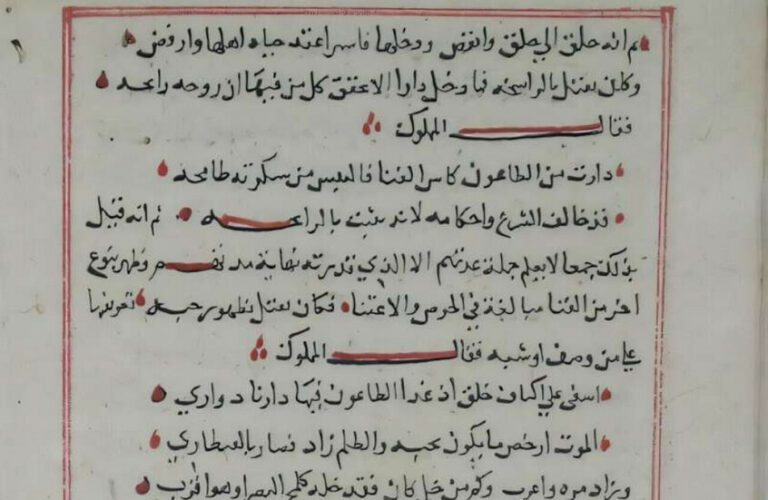 ثم انه حلق الي جلق وانقض ودخلها فاسرا عنه حياه اهلها وارفض
وكان يقتل بالرايحة فما دخل دارا الا تحقق كل من فيها ان روحه رايحه
فقال المملوك
دارت من الطاعون كاس الفنا فالنفس من سكرته طافحه
قد خالف الشرع واحكامه لانه يثبت بالرايحه ثم انه قتل
بذلك جمعا لا يعلم جملة عدتهم الا الذي قدرته نهاية مد وظهر بنوع
اخر من الفنا مبالغة في الحرص والاعتنا فكان يقتل بظهور حبه
علي من وصف او شبه فقال المملوك
اسفي علي اكناف جلق اذ غدا الطاعون فيها ذا زناد واري
الموت ارخص ما يكون بحبه والظلم زاد فصار بالقنطار
وزاد مره واعرب وكم من كان فقد خله كلمح البصر او هو اقرب